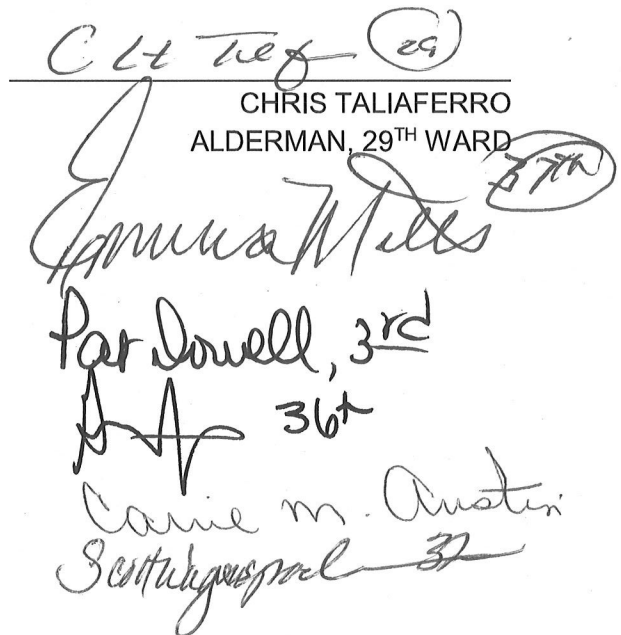 29
CHRIS TALIAFERRO
ALDERMAN, 29TH WARD
37th
Emma Mitts
Pat Dowell, 3rd
36th
Carrie M. Austin
Scott Waguespack 32